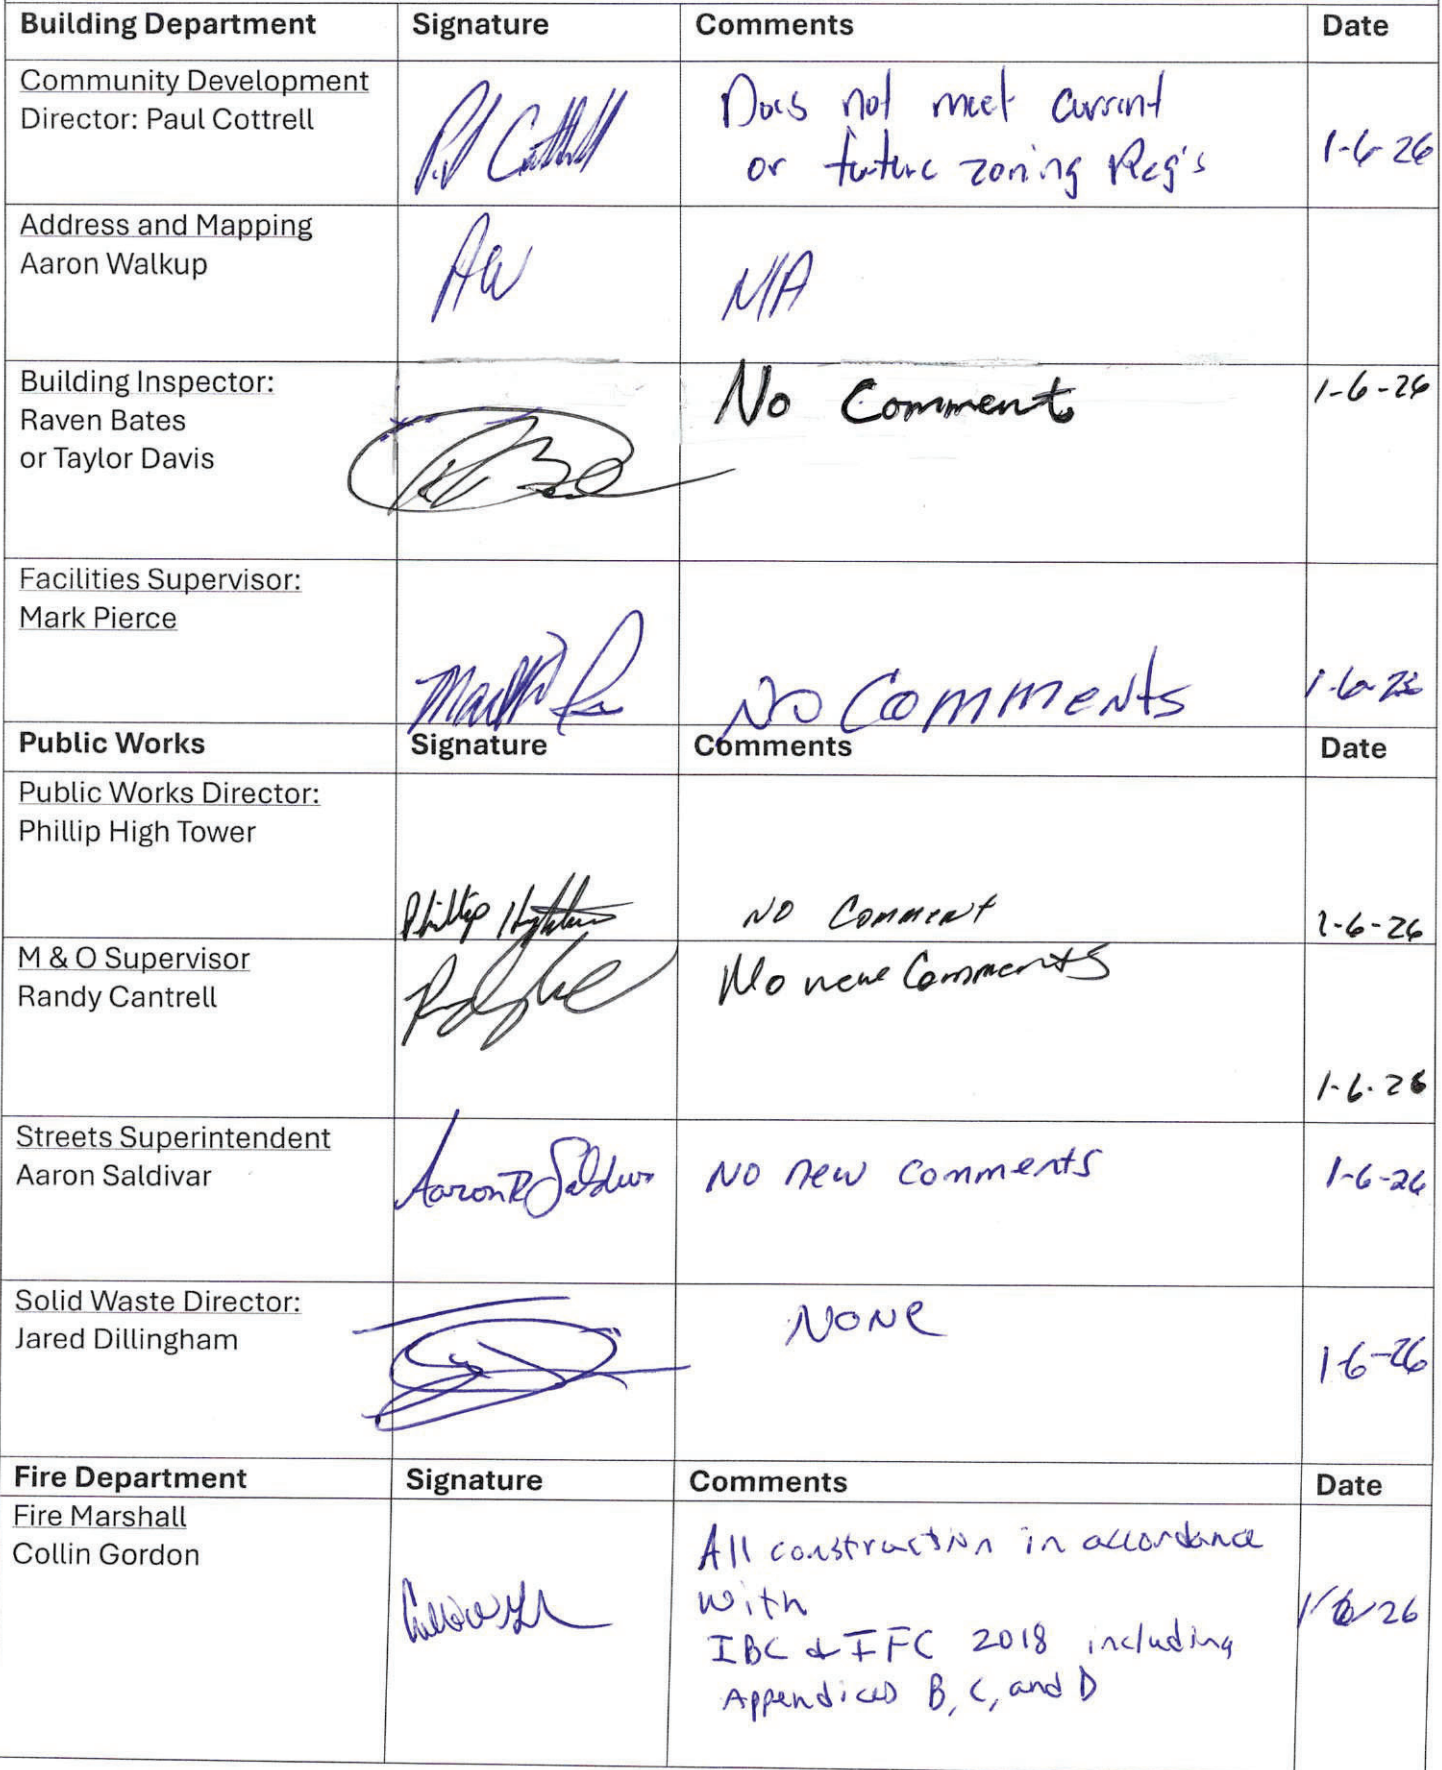 Building Department Signature Comments Date
Community Development
Director: Paul Cottrell
Does not meet current
or future zoning Reg's
1-6-26
Address and Mapping
Aaron Walkup
AW
N/A
Building Inspector:
Raven Bates
or Taylor Davis
No Comment
1-6-26
Facilities Supervisor:
Mark Pierce
No Comments
1-6-26
Public Works Signature Comments Date
Public Works Director:
Phillip High Tower
Phillip Hightower
NO COMMENT
1-6-26
M & O Supervisor
Randy Cantrell
No new Comments
1-6-26
Streets Superintendent
Aaron Saldivar
Aaron R Saldivar
NO new comments
1-6-26
Solid Waste Director:
Jared Dillingham
NONE
1-6-26
Fire Department Signature Comments Date
Fire Marshall
Collin Gordon
All construction in accordance
with
IBC & IFC 2018 including
Appendices B, C, and D
1/6/26